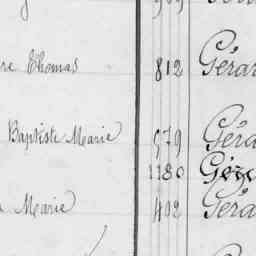 re Thomas 812 Gérar
Baptiste Marie 979 Géra
1180
Marie 402 Géra